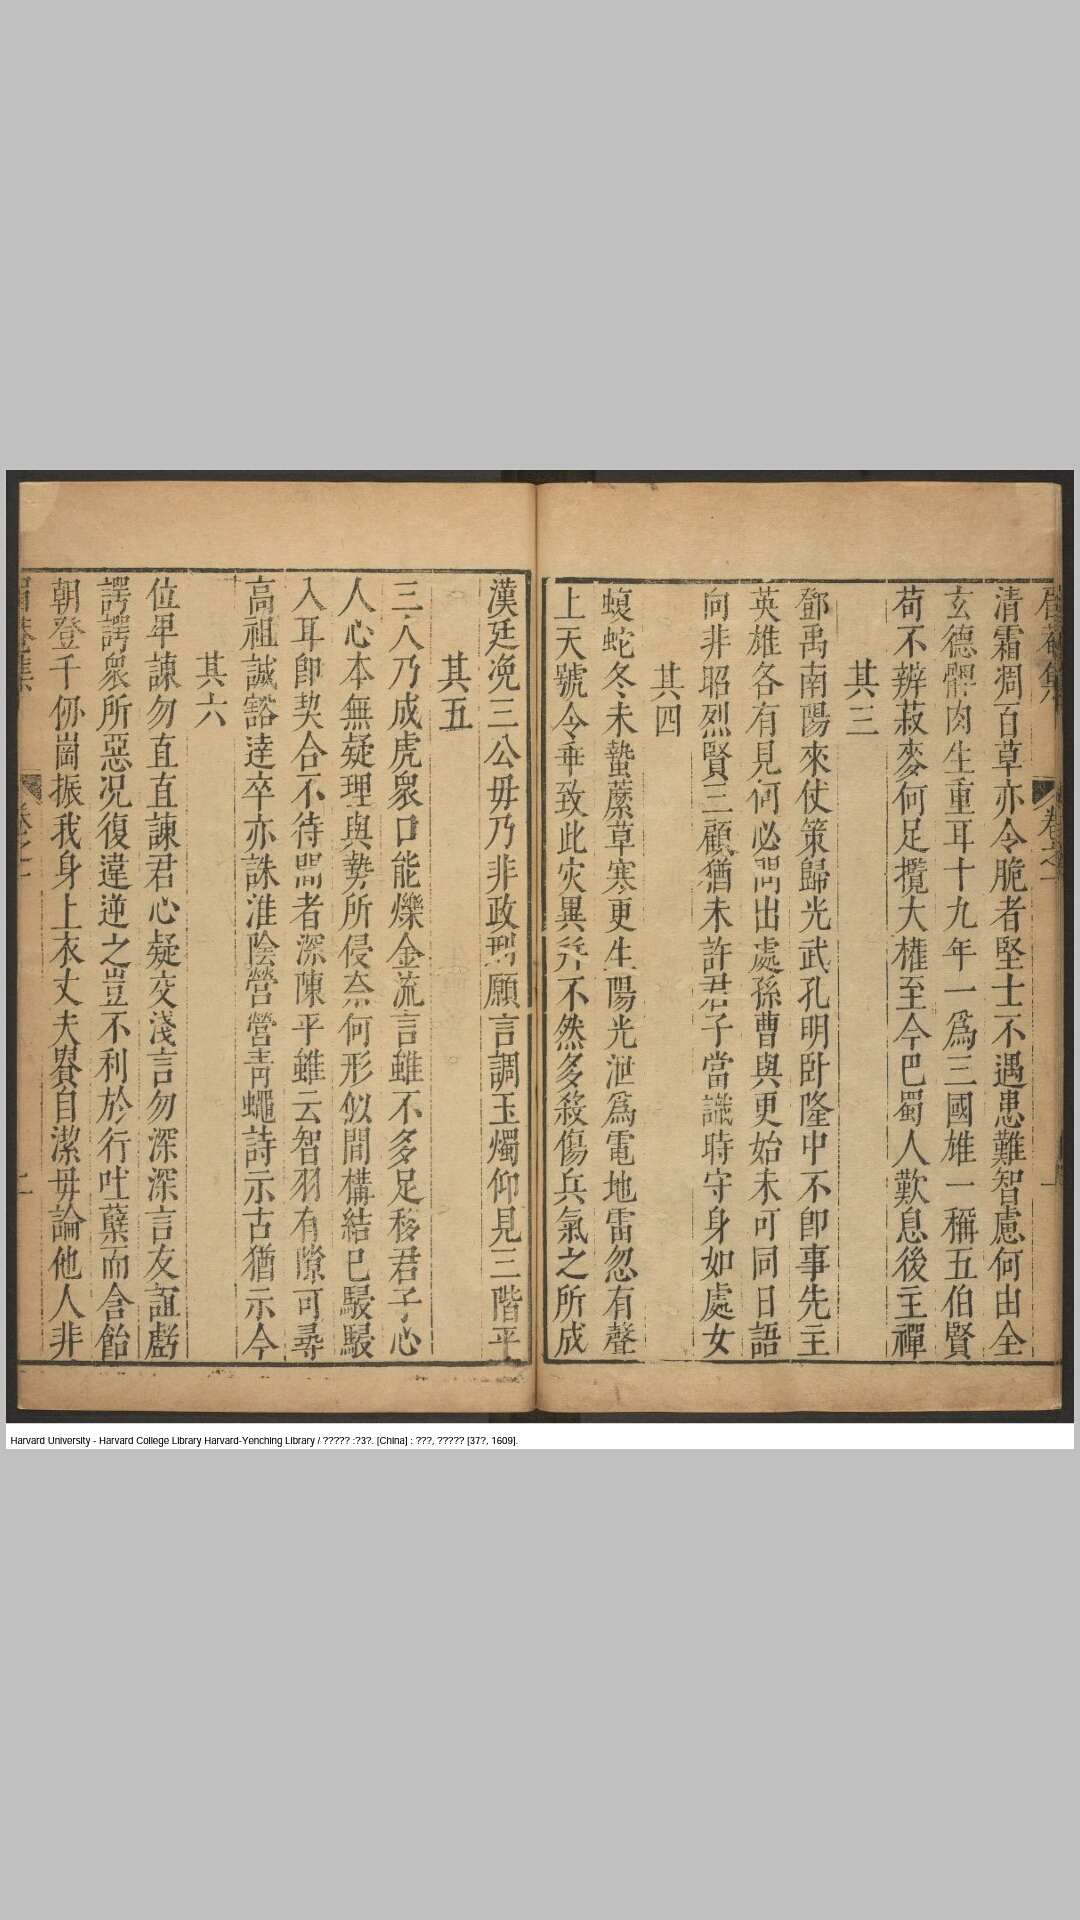 清霜凋百草亦令脆者堅士不遇患難智慮何由全
玄德髀肉生重耳十九年一爲三國雄一稱五伯賢
苟不辨菽麥何足攬大權至今巴蜀人歎息後主禪
其三
鄧禹南陽來仗策歸光武孔明卧隆中不卽事先主
英雄各有見何必問出處孫曹與更始未可同日語
向非昭烈賢三顧猶未許君子當識時守身如處女
其四
蝮蛇冬未蟄蘪草寒更生陽光泄爲電地雷忽有聲
上天號令乖致此灾異幷不然多殺傷兵氣之所成
漢廷免三公毋乃非政刑願言調玉燭仰見三階平
其五
三人乃成虎衆口能爍金流言雖不多足移君子心
人心本無疑理與勢所侵奈何形似間構結已駸駸
入耳卽契合不待間者深陳平雖云智羽有隙可尋
高祖誠豁達卒亦誅淮陰營營青蠅詩示古猶示今
其六
位卑諫勿直直諫君心疑交淺言勿深深言友誼虧
諤諤衆所惡况復違逆之豈不利於行吐蘖而含飴
朝登千仞崗振我身上衣丈夫貴自潔毋論他人非
Harvard University - Harvard College Library Harvard-Yenching Library / ????? :?3?. [China] : ???, ????? [37?, 1609].